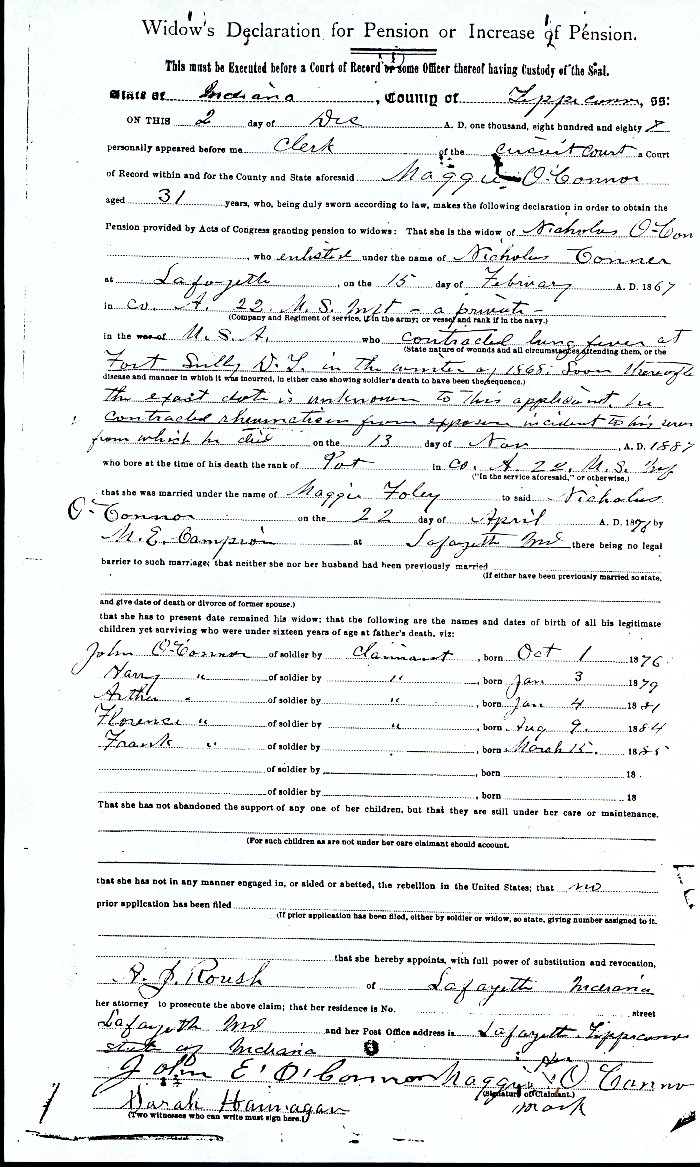 Widow's Declaration for Pension or Increase of Pension.
This must be Executed before a Court of Record or some Officer thereof having Custody of the Seal.
State of Indiana, County of Tippecanoe, ss:
ON THIS 2 day of Dec A. D. one thousand, eight hundred and eighty 8
personally appeared before me Clerk of the Circuit Court a Court
of Record within and for the County and State aforesaid Maggie O'Connor
aged 31 years, who, being duly sworn according to law, makes the following declaration in order to obtain the
Pension provided by Acts of Congress granting pension to widows: That she is the widow of Nicholas O'Con
, who enlisted under the name of Nicholas Conner
at Lafayette, on the 15 day of Febivary A. D. 1867
in Co. A. 22 U. S. Inft - a private -
(Company and Regiment of service, if in the army; or vessel and rank if in the navy.)
in the war of U.S.A. who contracted lung fever at
(State nature of wounds and all circumstances attending them, or the
Fort Sully D. T. in the winter of 1868. Soon thereafte
disease and manner in which it was incurred, in either case showing soldier's death to have been the sequence.)
the exact date is unknown to this applicant, he
contracted rheumatism from exposure incident to his serv
from which he died on the 13 day of Nov, A. D. 1887
who bore at the time of his death the rank of Pvt in Co. A. 22. U. S. Inf
("In the service aforesaid," or otherwise.)
that she was married under the name of Maggie Foley to said Nicholas
O'Connor on the 22 day of April A. D. 1876 by
M. E. Campion at Lafayette Ind there being no legal
barrier to such marriage; that neither she nor her husband had been previously married
(If either have been previously married so state,
and give date of death or divorce of former spouse.)
that she has to present date remained his widow; that the following are the names and dates of birth of all his legitimate
children yet surviving who were under sixteen years of age at father's death, viz:
John O'Connor of soldier by Claimant, born Oct 1 1876
Harry " of soldier by ", born Jan 3 1879
Arthur " of soldier by ", born Jan 4 1881
Florence " of soldier by ", born Aug 9. 1884
Frank " of soldier by, born March 15. 1885
of soldier by, born 18
of soldier by, born 18
That she has not abandoned the support of any one of her children, but that they are still under her care or maintenance.
(For such children as are not under her care claimant should account.
that she has not in any manner engaged in, or aided or abetted, the rebellion in the United States; that no
prior application has been filed
(If prior application has been filed, either by soldier or widow, so state, giving number assigned to it.
that she hereby appoints, with full power of substitution and revocation,
A. J. Roush of Lafayette Indiana
her attorney to prosecute the above claim; that her residence is No. street
Lafayette Ind and her Post Office address is Lafayette Tippecanoe
state of Indiana
her
John E. O'Connor Maggie x O'Conno
(Signature of Claimant.)
mark
Sarah Hannagan
(Two witnesses who can write must sign here.)